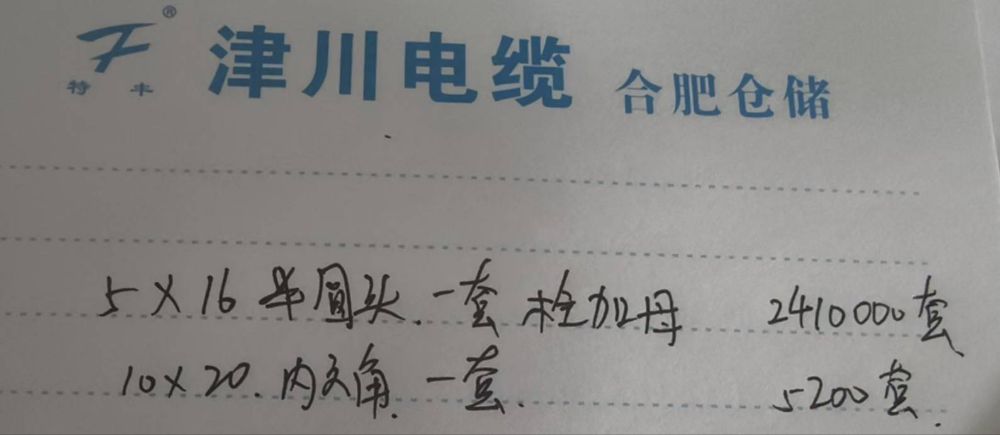 ® 津川电缆 合肥仓储
特丰
5×16半圆头.一套栓加母 2410000套
10×20.内六角.一套. 5200套.